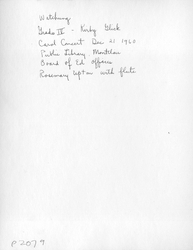 Watchung
Grade IV - Kirby Glick
Carol Concert Dec 21 1960
Public Library Montclair
Board of Ed offices
Rosemary Upton with flute
P2079